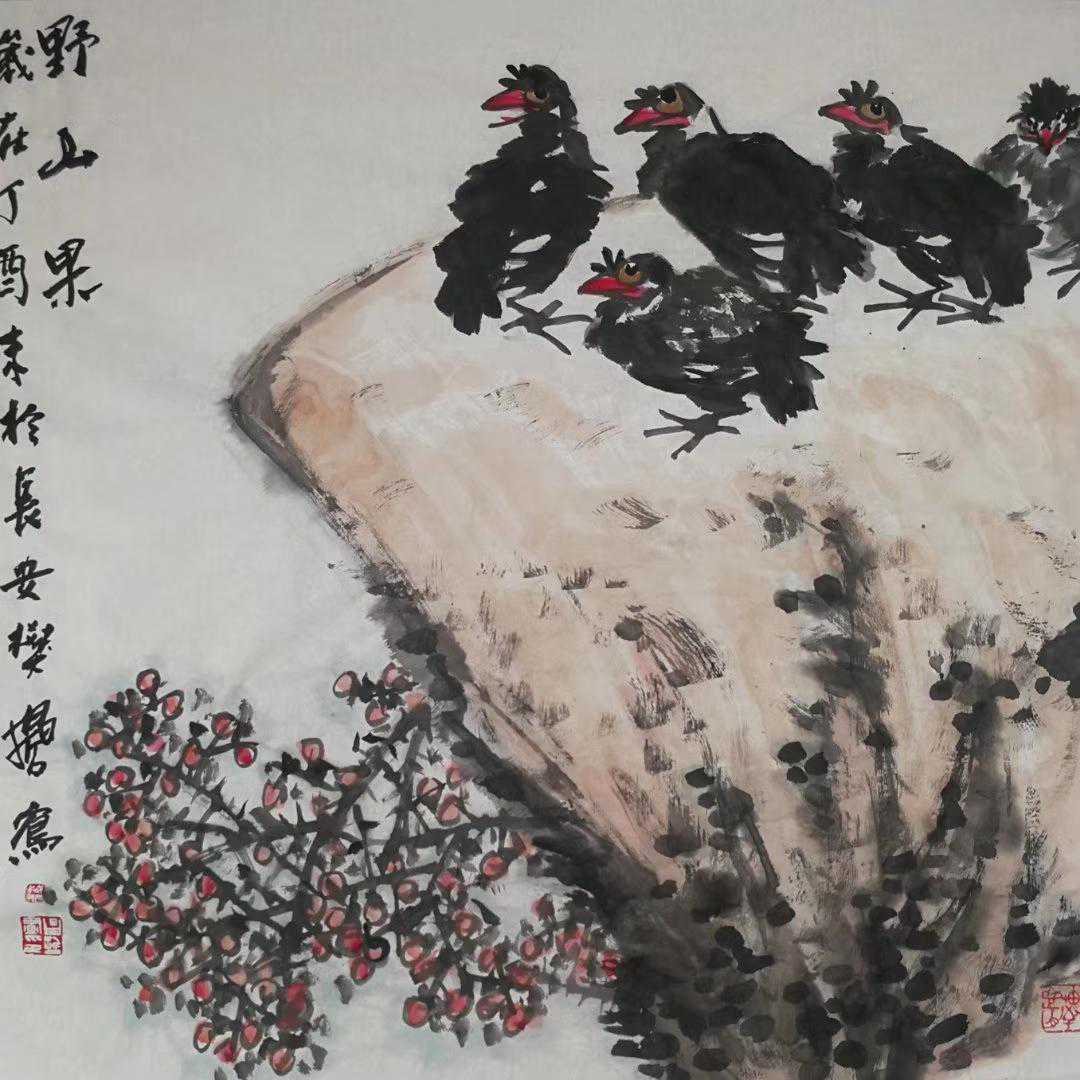 野山果
歲在丁酉末於長安樊昌哲寫